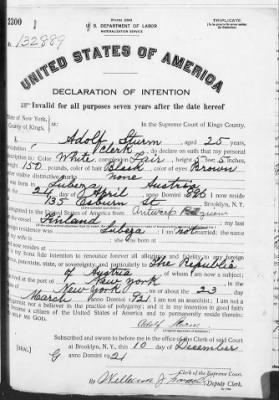 2200
Form 2203
TRIPLICATE
U. S. DEPARTMENT OF LABOR
NATURALIZATION SERVICE
No. 132889
UNITED STATES OF AMERICA
DECLARATION OF INTENTION
Invalid for all purposes seven years after the date hereof
State of New York,
County of Kings,
In the Supreme Court of Kings County.
Adolf Sturm, aged 25 years,
occupation Clerk, do declare on oath that my personal
description is: Color White, complexion Fair, height 5 feet 5 inches,
150 pounds, color of hair Black, color of eyes Brown
other visible distinctive marks none
Austria
24 day of April, anno Domini 1896; I now reside
at 135 Osburn St, Brooklyn, N.Y.
United States of America from Antwerp
Finland
residence was not
she was born at
my bona fide intention to renounce forever all allegiance and fidelity to any foreign
potentate, state, or sovereignty, and particularly to The Republic
of Austria, of whom I am now a subject;
arrived at the port of New York
New York, on or about the 23 day
March, anno Domini 1921; I am not an anarchist; I am not a
polygamist nor a believer in the practice of polygamy; and it is my intention in good faith
to become a citizen of the United States of America and to permanently reside therein:
HELP ME GOD.
Adolf Sturm
Subscribed and sworn to before me in the office of the Clerk of said Court
at Brooklyn, N.Y., this 10 day of December
anno Domini 1921
[SEAL]
Clerk of the Supreme Court.
By William J
Deputy Clerk.